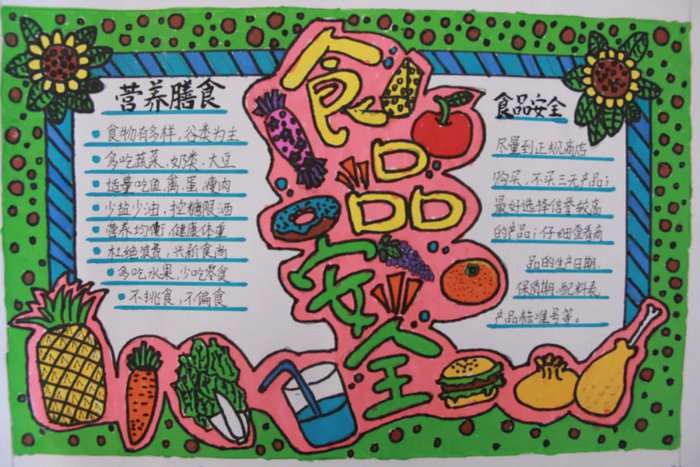 营养膳食
食物有多样，谷类为主
多吃蔬菜、奶类、大豆
适量吃鱼，禽，蛋，瘦肉
少盐少油，控糖限酒
营养均衡，健康体重
杜绝浪费，兴新食尚
多吃水果，少吃零食
不挑食，不偏食
食品安全
食品安全
尽量到正规商店
购买，不买三无产品；
最好选择信誉较高
的产品；仔细查看商
品的生产日期，
保质期，配料表，
产品标准号等。